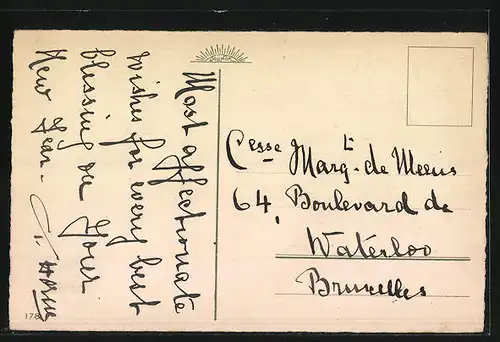 Most affectionate
wishes for every best
blessing on your
New Year -
Cesse Marg. de Meeus
64, Boulevard de
Waterloo
Bruxelles
178